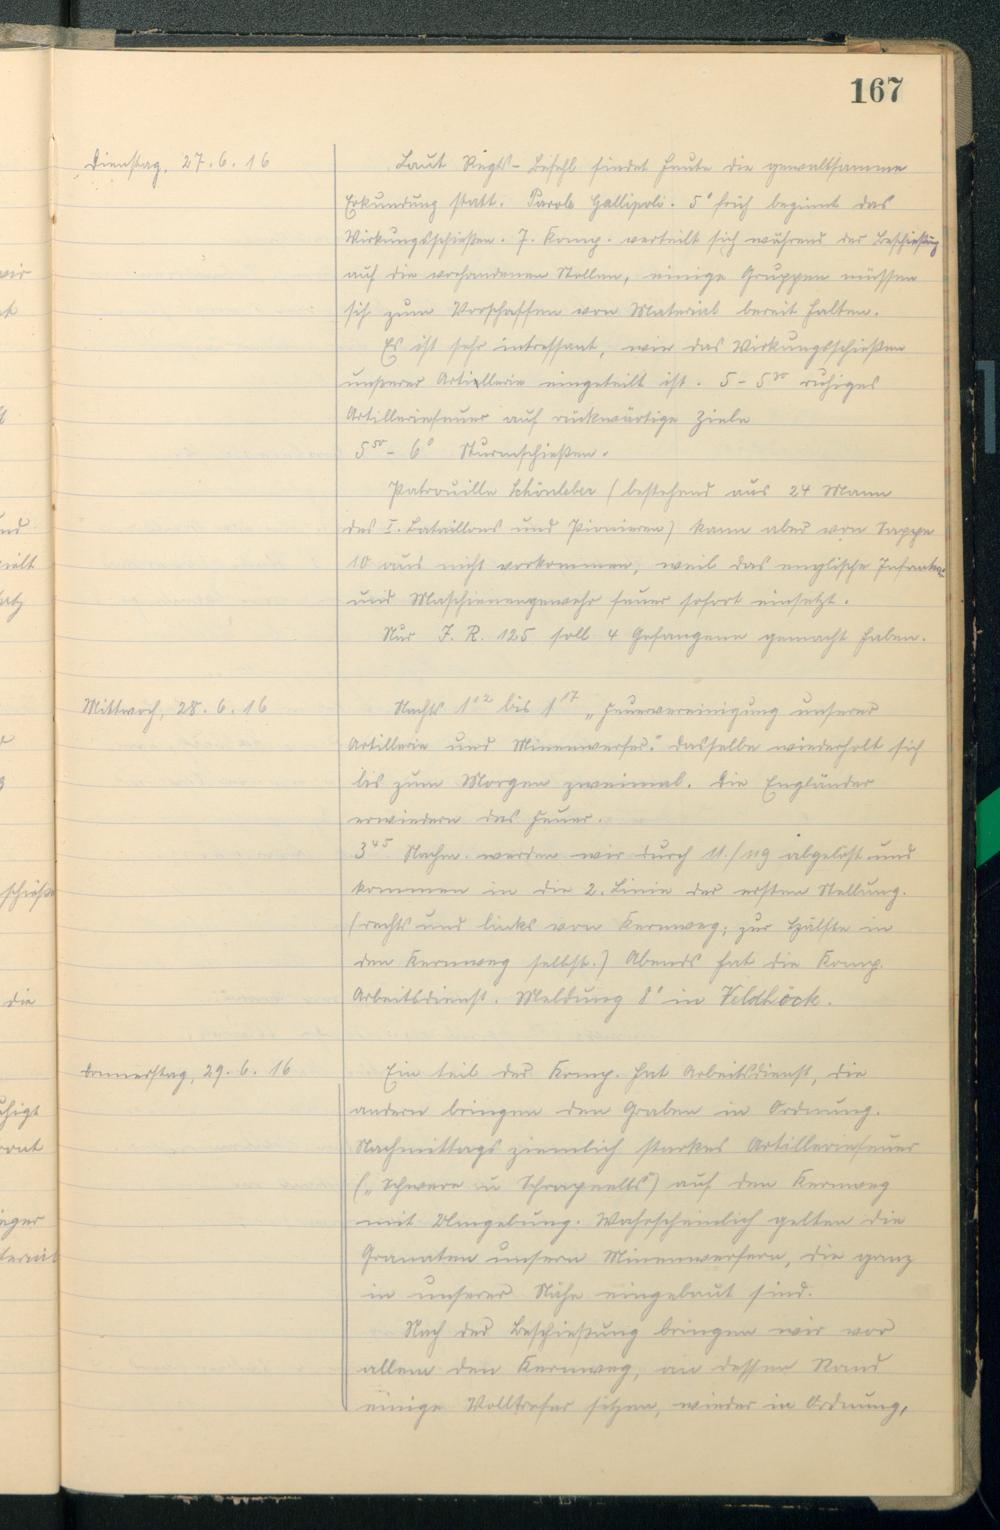 167
Dienstag, 27.6.16
Laut Regts-Befehl findet heute die gewaltsamme
Erkundung statt. Parole Gallipoli. 5° früh beginnt das
Wirkungsschießen. 7. Komp. verteilt sich während der Beschießung
auf die vorhandenen Stollen, einige Gruppen müssen
sich zum Vorschaffen von Material bereit halten.
Es ist sehr intressant, wie das Wirkungsschießen
unserer Artillerie eingeteilt ist. 5 - 5⁵⁰ ruhiges
Artilleriefeuer auf rückwärtige Ziele
5⁵⁰ - 6° Sturmschießen.
Patrouille Schönleber (bestehend aus 24 Mann
des I. Bataillons und Pionieren) kann aber von Sappe
10 aus nicht vorkommen, weil das englische Infanterie-
und Maschienengewehr feuer sofort einsetzt.
Nur J. R. 125 soll 4 Gefangene gemacht haben.
Mittwoch, 28.6.16
Nachts 1¹² bis 1¹⁷ „Feuervereinigung unserer
Artillerie und Minenwerfer." Dasselbe wiederholt sich
bis zum Morgen zweimal. Die Engländer
erwiedern das Feuer.
3⁴⁵ Nachm. werden wir durch 11./119 abgelöst und
kommen in die 2. Linie der ersten Stellung.
(rechts und links vom Kernweg; zur Hälfte in
den Kernweg selbst.) Abends hat die Komp.
Arbeitsdienst. Meldung 8° in Veldhöck.
Donnerstag, 29.6.16
Ein teil der Komp. hat Arbeitsdienst, die
andern bringen den Graben in Ordnung.
Nachmittags ziemlich starkes Artilleriefeuer
(„Schwere u Schrapnells") auf den Kernweg
mit Umgebung. Wahrscheinlich gelten die
Granaten unsern Minenwerfern, die ganz
in unserer Nähe eingebaut sind.
Nach der Beschießung bringen wir vor
allem den Kernweg, an dessen Rand
einige Volltrefer sitzen, wieder in Ordnung,